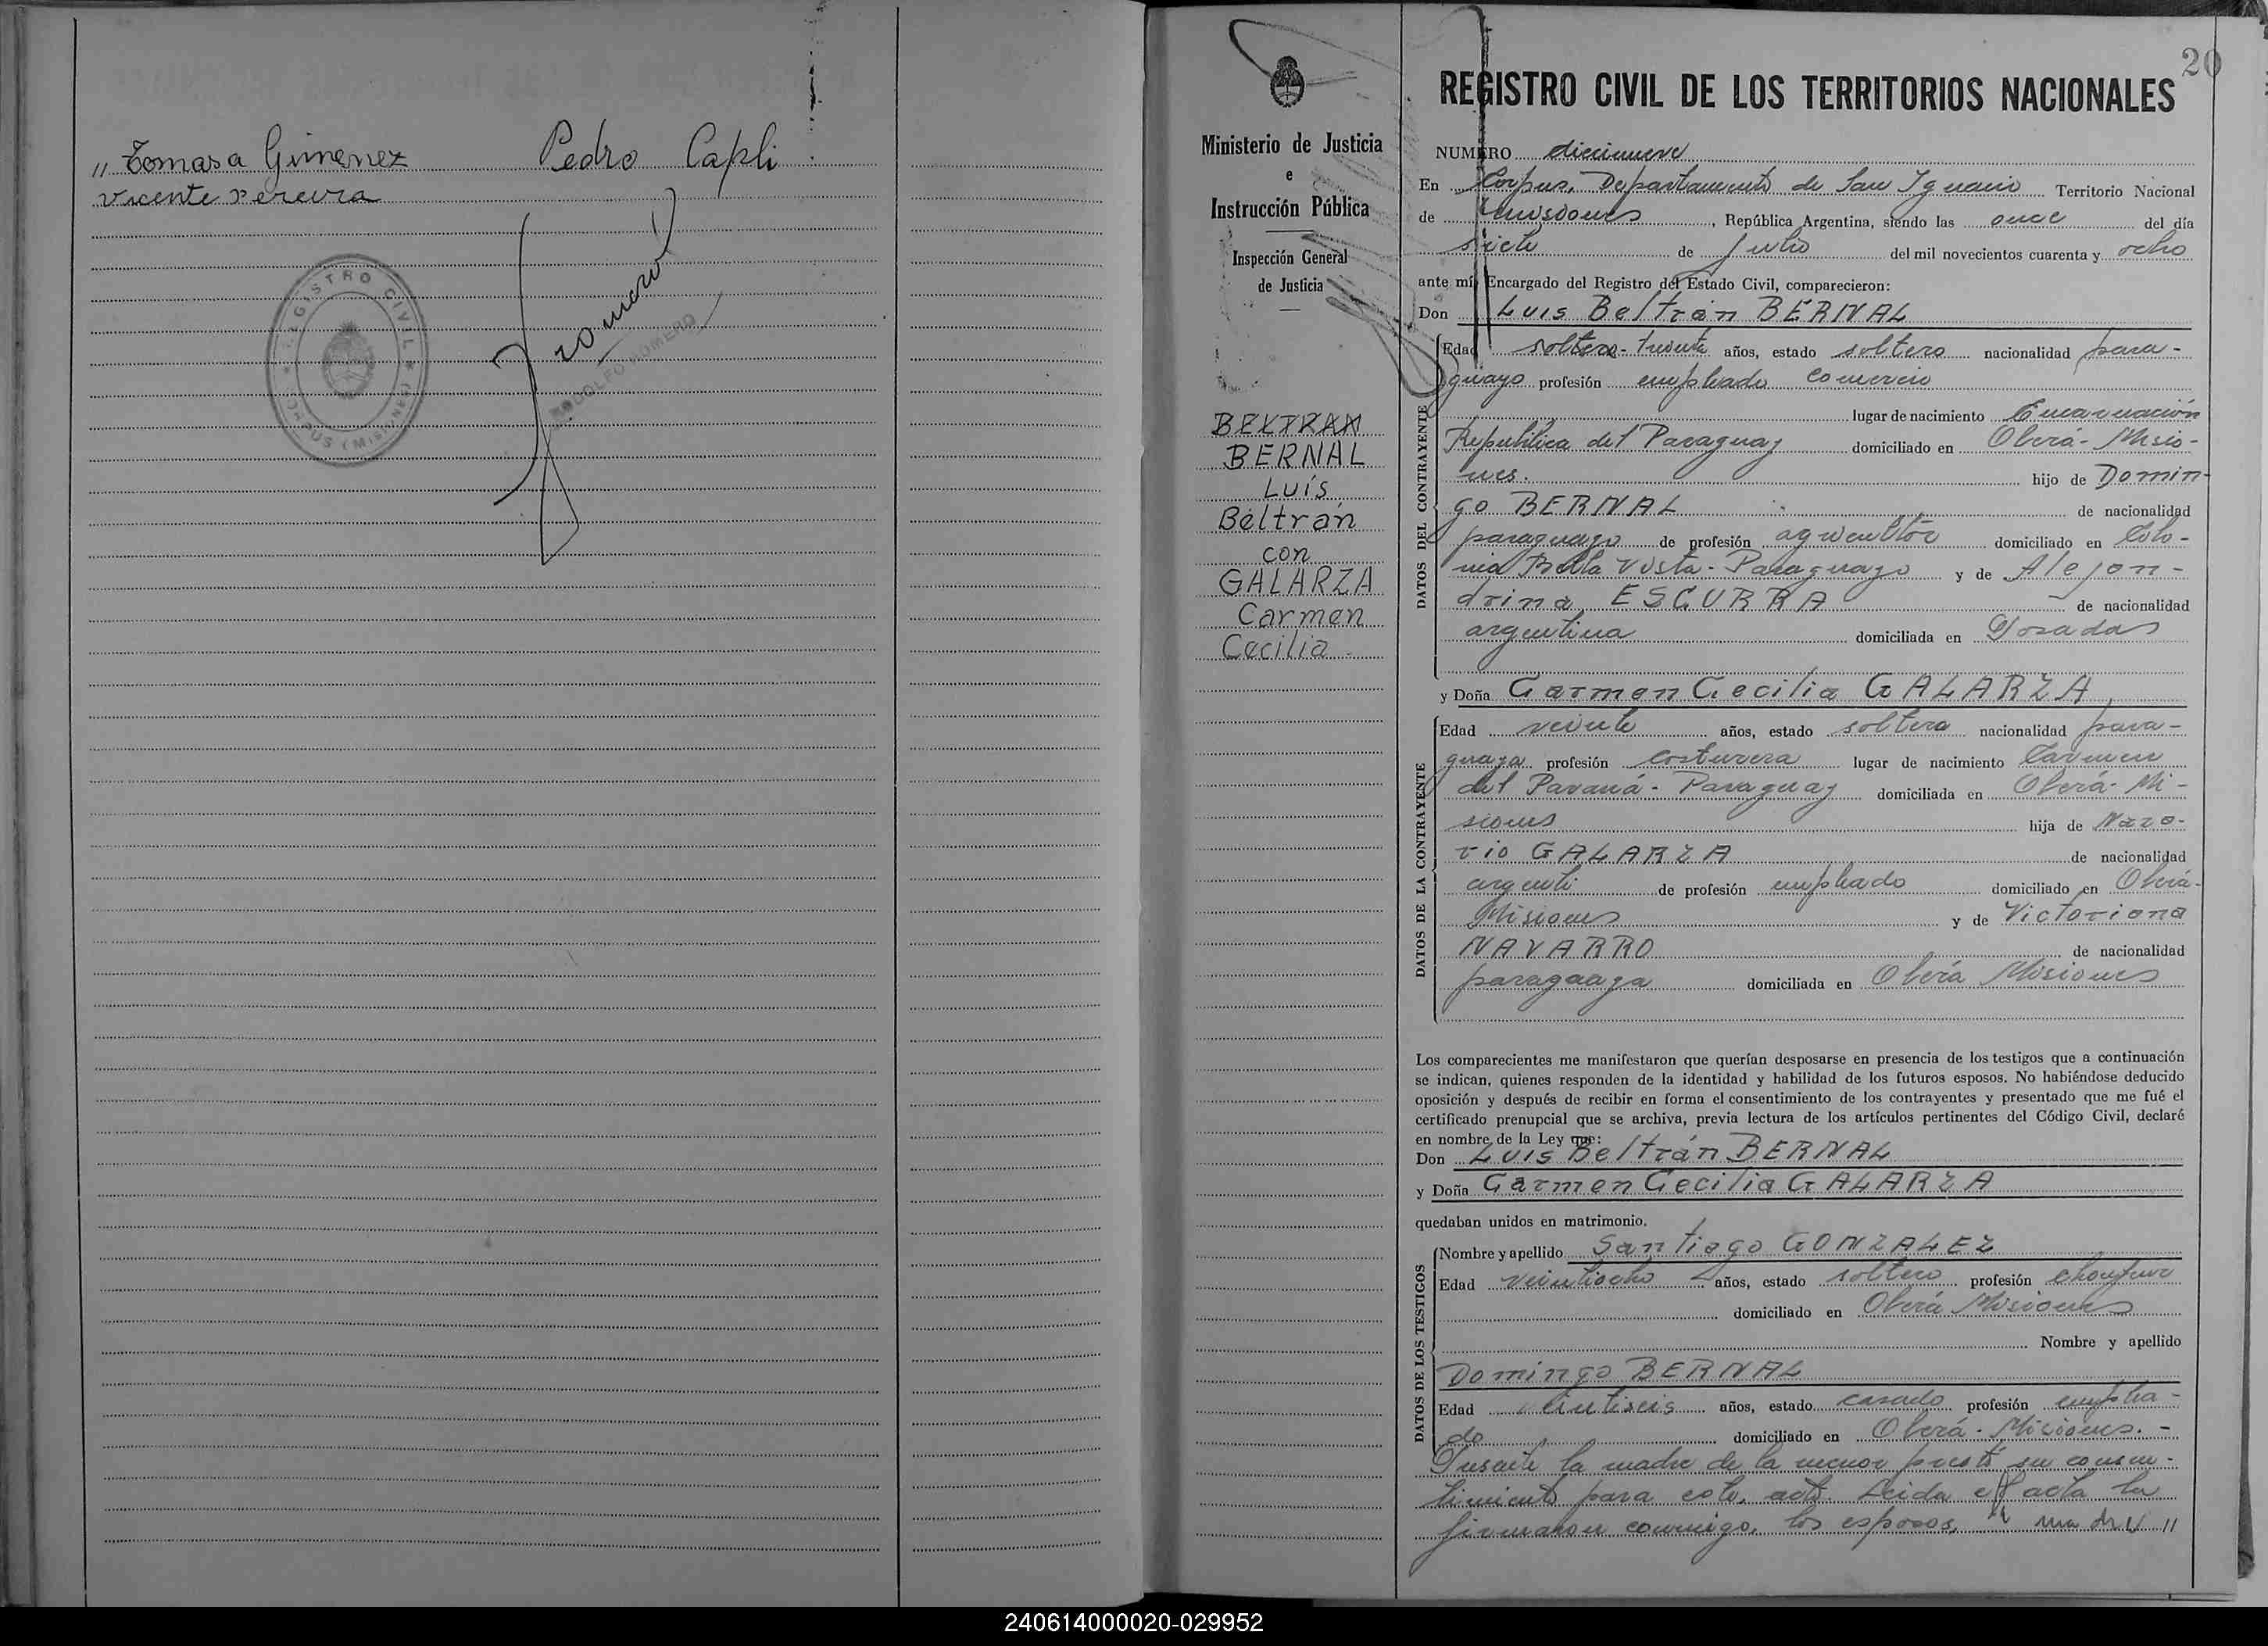 „ Tomasa Gimenez Pedro Capli
Vicente Pereira
REGISTRO CIVIL
CORPUS (MISIONES)
Romero
RODOLFO ROMERO
20
Ministerio de Justicia
e
Instrucción Pública
Inspección General
de Justicia
BELTRAN
BERNAL
Luís
Beltrán
con
GALARZA
Carmen
Cecilia
REGISTRO CIVIL DE LOS TERRITORIOS NACIONALES
NUMERO diecinueve
En Corpus, Departamento de San Ignacio Territorio Nacional
de Misiones, República Argentina, siendo las once del día
siete de Julio del mil novecientos cuarenta y ocho
ante mí, Encargado del Registro del Estado Civil, comparecieron:
Don Luis Beltrán BERNAL
DATOS DEL CONTRAYENTE
Edad soltero- treinta años, estado soltero nacionalidad para-
guayo profesión empleado comercio
lugar de nacimiento Encarnación
República del Paraguay domiciliado en Oberá- Misio-
nes. hijo de Domin-
go BERNAL de nacionalidad
paraguayo de profesión agricultor domiciliado en Colo-
nia Bella Vista- Paraguayo y de Alejan-
drina ESCURRA de nacionalidad
argentina domiciliada en Posadas
y Doña Carmen Cecilia GALARZA
DATOS DE LA CONTRAYENTE
Edad veinte años, estado soltera nacionalidad para-
guaya profesión costurera lugar de nacimiento Carmen
del Paraná- Paraguay domiciliada en Oberá- Mi-
siones hija de Naza-
rio GALARZA de nacionalidad
argenti de profesión empleado domiciliado en Oberá-
Misiones y de Victoriana
NAVARRO de nacionalidad
paraguaya domiciliada en Oberá Misiones
Los comparecientes me manifestaron que querían desposarse en presencia de los testigos que a continuación
se indican, quienes responden de la identidad y habilidad de los futuros esposos. No habiéndose deducido
oposición y después de recibir en forma el consentimiento de los contrayentes y presentado que me fué el
certificado prenupcial que se archiva, previa lectura de los artículos pertinentes del Código Civil, declaré
en nombre de la Ley que:
Don Luis Beltrán BERNAL
y Doña Carmen Cecilia GALARZA
quedaban unidos en matrimonio.
DATOS DE LOS TESTIGOS
Nombre y apellido Santiago GONZALEZ
Edad veintiocho años, estado soltero profesión
domiciliado en Oberá Misiones
Nombre y apellido
Domingo BERNAL
Edad veintiseis años, estado casado profesión emplea-
do domiciliado en Oberá- Misiones.-
Presente la madre de la menor prestó su consen-
timiento para este acto. Leida el acta la
firmaron conmigo, los esposos, madre „
240614000020-029952